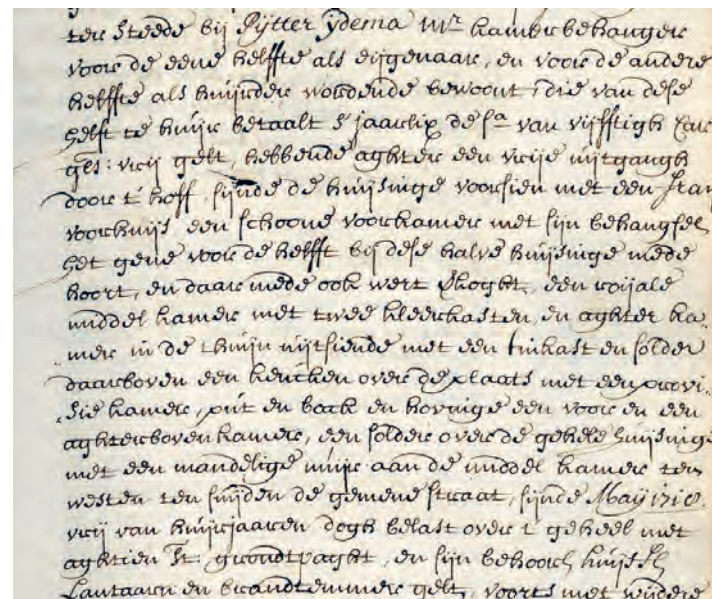 ter steede bij Pijtter ijdema Mr. kamerbehanger
voor de eene helffte als eijgenaar, en voor de andere
helffte als huijrder wordende bewoont, die van dese
helft te huijr betaalt s jaarlix de sa van vijfftigh Car
gls: vrij gelt, hebbende aghter een vrije uijtgangh
door t hoff, sijnde de huijsinge voorsien met een fraaij
voorhuijs een schoone voorkamer met sijn behangsel,
het gene voor de helfft bij dese halve huijsinge mede
hoort, en daar mede ook wert verkoght, een roijale
middel kamer met twee kleerkasten, en aghter ka,,
mer in de thuijn uijtsiende met een tinkast en solder
daarboven een keucken over de plaats met een provi
,,sie kamer, put en back en hovinge een voor en een
aghterbovenkamer, een solder over de gehele huijsinge
met een mandelige muijr aan de middel kamer ten
westen ten suijden de gemene straat, sijnde Maij 1710.
vrij van huijrjaaren dogh belast over t geheel met
aghtien St: grondtpaght, en sijn behoorl huijs
Lantaarn en brandtemmer gelt, voorts met wijdere